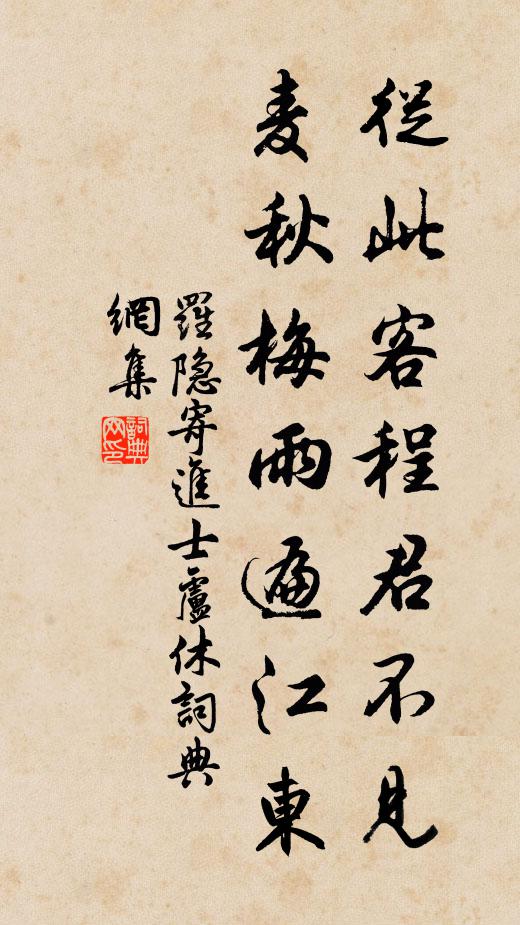 從此客程君不見
麦秋梅雨遍江東
羅隐寄進士盧休詞典
網集
詞典
网印